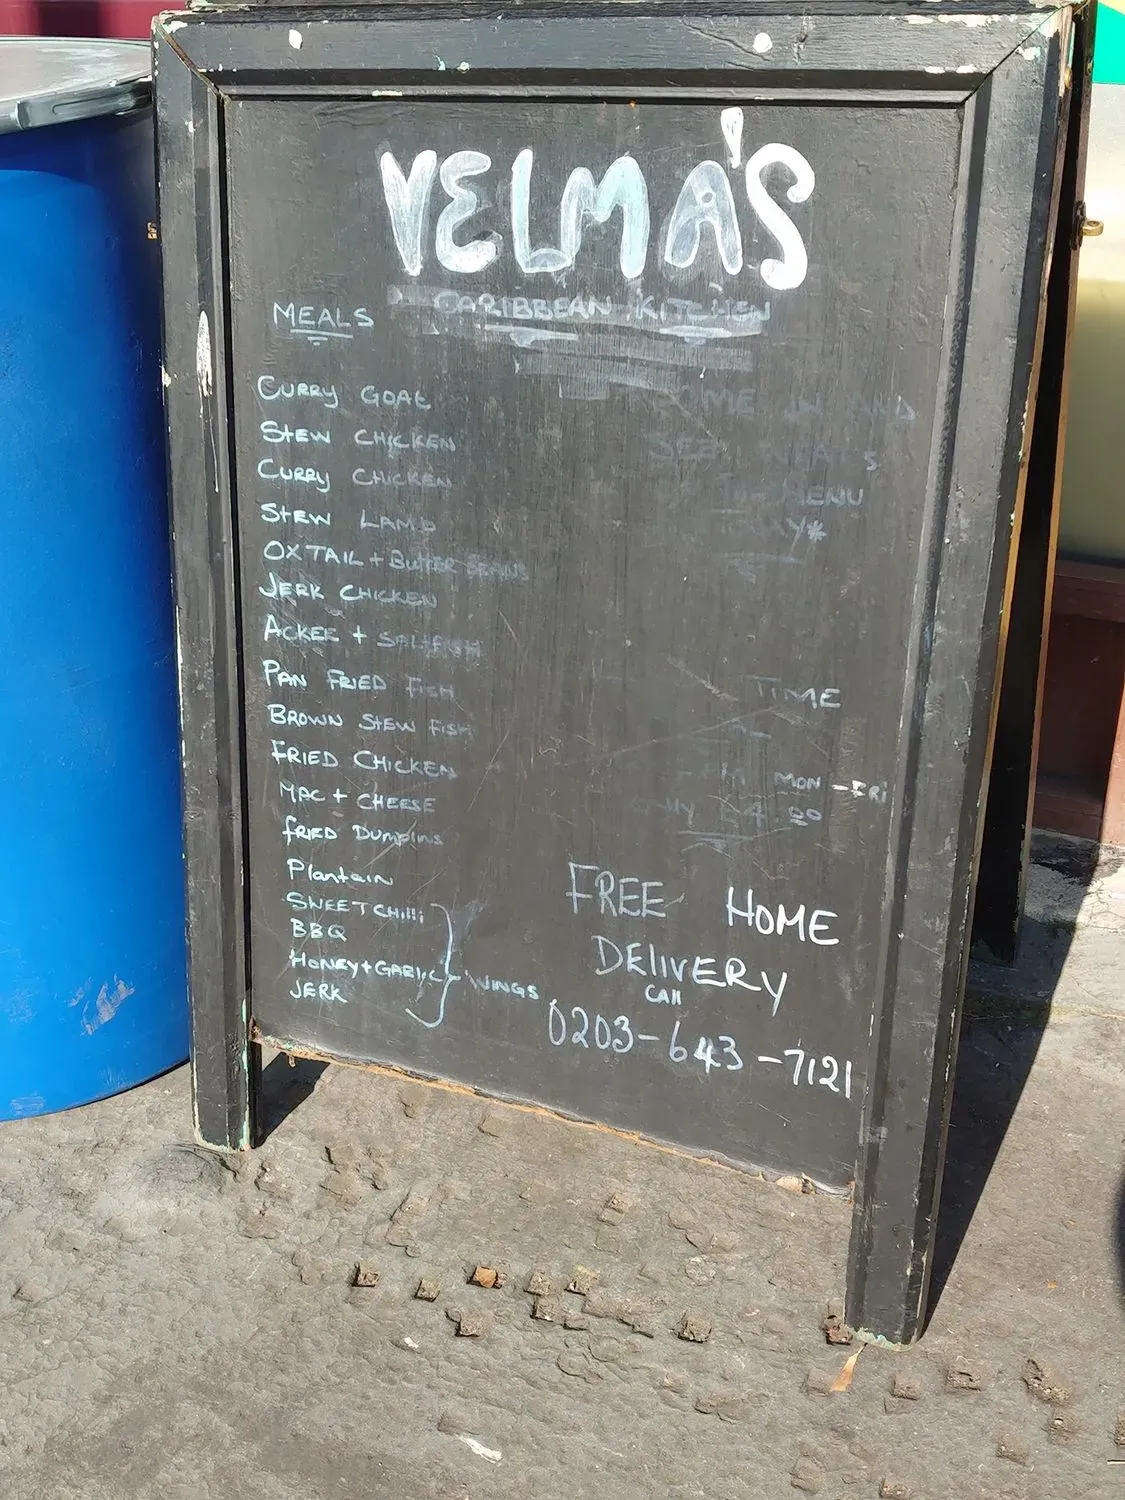 VELMA'S
CARIBBEAN KITCHEN
MEALS
CURRY GOAt
StEW CHICKEN
CURRY CHICKEN
StEW LAMB
OXTAIL + BUTTER BEANS
JERK CHICKEN
ACKEE + SALTFISH
PAN FRIED FISH
BROWN StEW FISH
FRIED CHICKEN
MAC + CHEESE
fRIED DUmplins
Plantain
SWEET CHilli
BBQ
HONEY + GARLIC
JERK
WINGS
COME IN AND
SEE
MENU
TIME
MON - FRI
ONLY £4.00
FREE HOME
DElIVERY
CAll
0203-643-7121